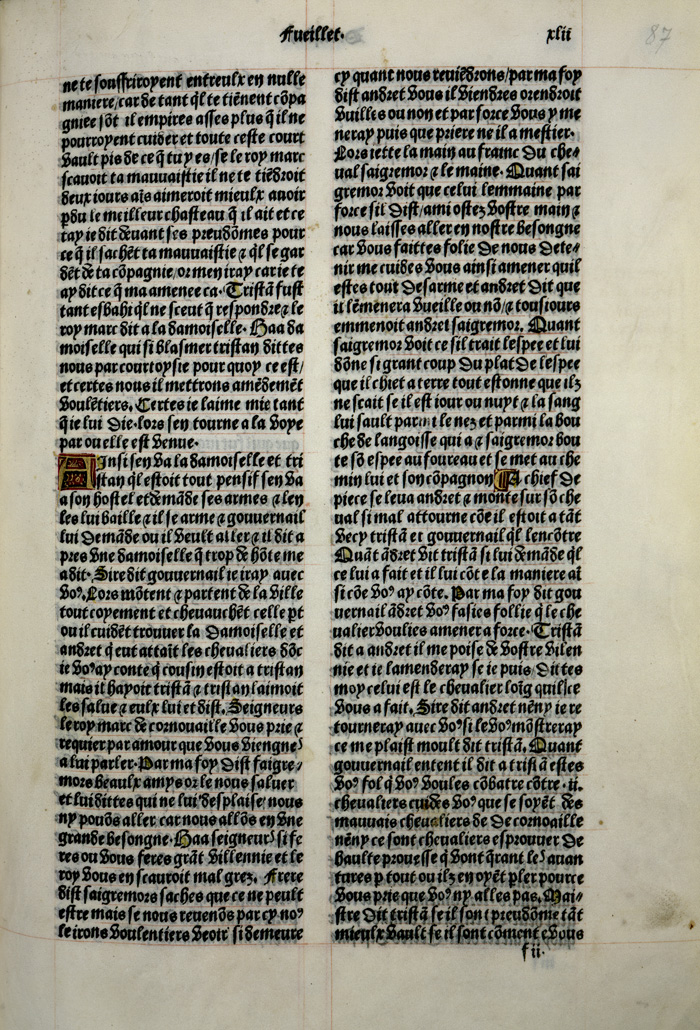 Fueillet. xlii
87
ne te souffriroyent entreulx en nulle
maniere/car de tant q̃l te tiẽnent cõpa
gniee sõt il empires asses plus q̃ il ne
pourroyent cuider et toute ceste court
vault pis de ce q̃ tu y es/se le roy marc
scauoit ta mauuaistie il ne te tiẽdroit
deux iours ais aimeroit mieulx auoir
p̱du le meilleur chasteau q̃ il ait et ce
tay ie dit deuant ses preudõmes pour
ce q̃ il sachẽt ta mauuaistie ⁊ q̃l se gar
dẽt de ta cõpagnie/or men iray car ie te
ay dit ce q̃ ma amenee ca. Tristã fust
tant esbahi q̃l ne sceut q̃ respondre ⁊ le
roy marc dit a la damoiselle. Haa da
moiselle qui si blasmer tristan dittes
nous par courtoysie pour quoy ce est/
et certes nous il mettrons amẽdemẽt
voulẽtiers. Certes ie laime mie tant
q̃ ie lui die. lors sen tourne a la voye
par ou elle est venue.
Ainsi sen va la damoiselle et tri
stan q̃l estoit tout pensif sen va
a son hostel et demãde ses armes ⁊ len
les lui baille ⁊ il se arme ⁊ gouuernail
lui demãde ou il veult aller ⁊ il dit a
pres vne damoiselle q̃ trop de hõte me
a dit. Sire dit gouuernail ie iray auec
voꝰ. Lors mõtent ⁊ partent de la ville
tout coyement et cheuauchẽt celle p̱t
ou il cuidẽt trouuer la damoiselle et
andret q̃ eut attait les cheualiers dõc
ie voꝰ ay conte q̃ cousin estoit a tristan
mais il hayoit tristã ⁊ tristan laimoit
les salue ⁊ eulx lui et dist. Seigneurs
le roy marc de cornouaille vous prie ⁊
requier par amour que vous viengneꝰ
a lui parler. Par ma foy dist saigre/
mors beaulx amys or le nous saluer
et lui dittes qui ne lui desplaise/nous
ny pouõs aller car nous allõs en vne
grande besongne. Haa seigneurꝰ si fe
res ou vous feres grãt villennie et le
roy vous en scauroit mal grez. Frere
dist saigremors saches que ce ne peult
estre mais se nous reuenõs par cy noꝰ
le irons voulentiers veoir si demeure
cy quant nous reuiẽdrons/par ma foy
dist andret vous il viendres orendroit
vuilles ou non et par force vous y me
neray puis que priere ne il a mestier.
Lors iette la main au frainc du che/
ual saigremor ⁊ le maine. Quant sai
gremor voit que celui lemmaine par
force sil dist/ami ostez vostre main ⁊
nous laisses aller en nostre besongne
car vous faittes folie de nous dete/
nir me cuides vous ainsi amener quil
estes tout desarme et andret dit que
il lẽmenera vueille ou nõ/⁊ tousiours
emmenoit andret saigremor. Quant
saigremor voit ce sil trait lespee et lui
dõne si grant coup du plat de lespee
que il chiet a terre tout estonne que ilz
ne scait se il est iour ou nuyt ⁊ la sang
lui sault parmi le nez et parmi la bou
che de langoisse qui a ⁊ saigremor bou
te sõ espee au foureau et se met au che
min lui et son cõpagnon A chief de
piece se leua andret ⁊ monte sur sõ che
ual si mal attourne cõe il estoit a tãt
vecy tristã et gouuernail q̃l lencõtre
Quãt ãdret vit tristã si lui demãde q̃l
ce lui a fait et il lui cõte la maniere ai
si cõe voꝰ ay cõte. Par ma foy dit gou
uernail ãdret voꝰ fasies follie q̃ le che
ualier voulies amener a force. Tristã
dit a andret il me poise de vostre vilen
nie et ie lamenderay se ie puis/dittes
moy celui est le cheualier loĩg qui ce
vous a fait. Sire dit andret nẽny ie re
tourneray auec voꝰ si le voꝰ mõstreray
ce me plaist moult dit tristã. Quant
gouuernail entent il dit a tristã estes
voꝰ fol q̃ voꝰ voules cõbatre cõtre .ii.
cheualiers cuides voꝰ que se soyẽt des
mauuais cheualiers de de cornoaille
nẽny ce sont cheualiers esprouuer de
haulte prouesse q̃ vont q̃rant leꝰ auan
tures p̱ tout ou ilz en oyẽt p̱ler pource
vous prie que voꝰ ny alles pas. Mai/
stre dit tristã se il sont preudõme tãt
mieulx vault se il sont cõment vous
f ii.